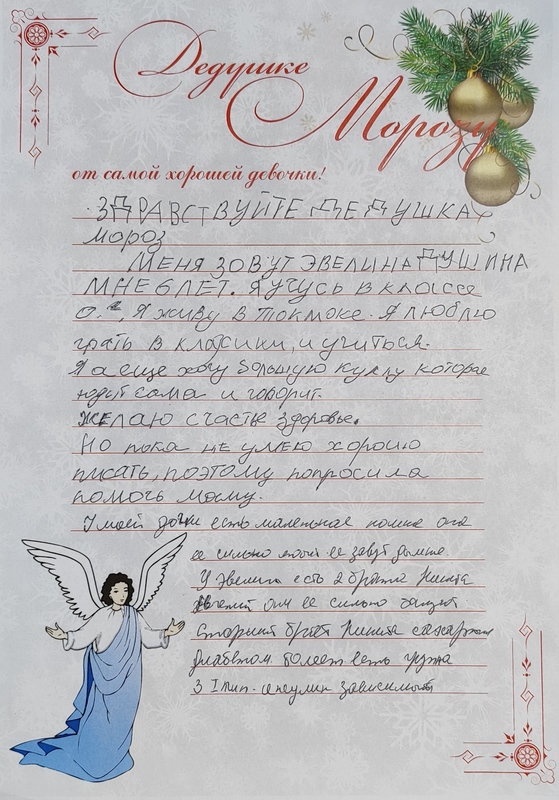 Дедушке
Морозу
от самой хорошей девочки!
ЗДРАВСТВУЙТЕ ДЕДУШКА
МОРОЗ
МЕНЯ ЗОВУТ ЭВЕЛИНА ДУШИНА
МНЕ 6 ЛЕТ. Я УЧУСЬ В КЛАССЕ
О. Я живу в Токмоке. Я люблю
грать в класики, и учиться.
Я а еще хочу большую куклу которае
ходит сама и говорит.
ЖЕЛАЮ счастье здоровье.
Но пока не умею хорошо
писать, поэтому попросила
помочь маму.
У моей дочки есть маленькая кошка она
ее сильно любит ее зовут дымка
У Эвелины есть 2 брата Никита
они ее сильно
старший брат Никита сахарным
диабетом болеет есть група
3 I тип. инсулин зависимый